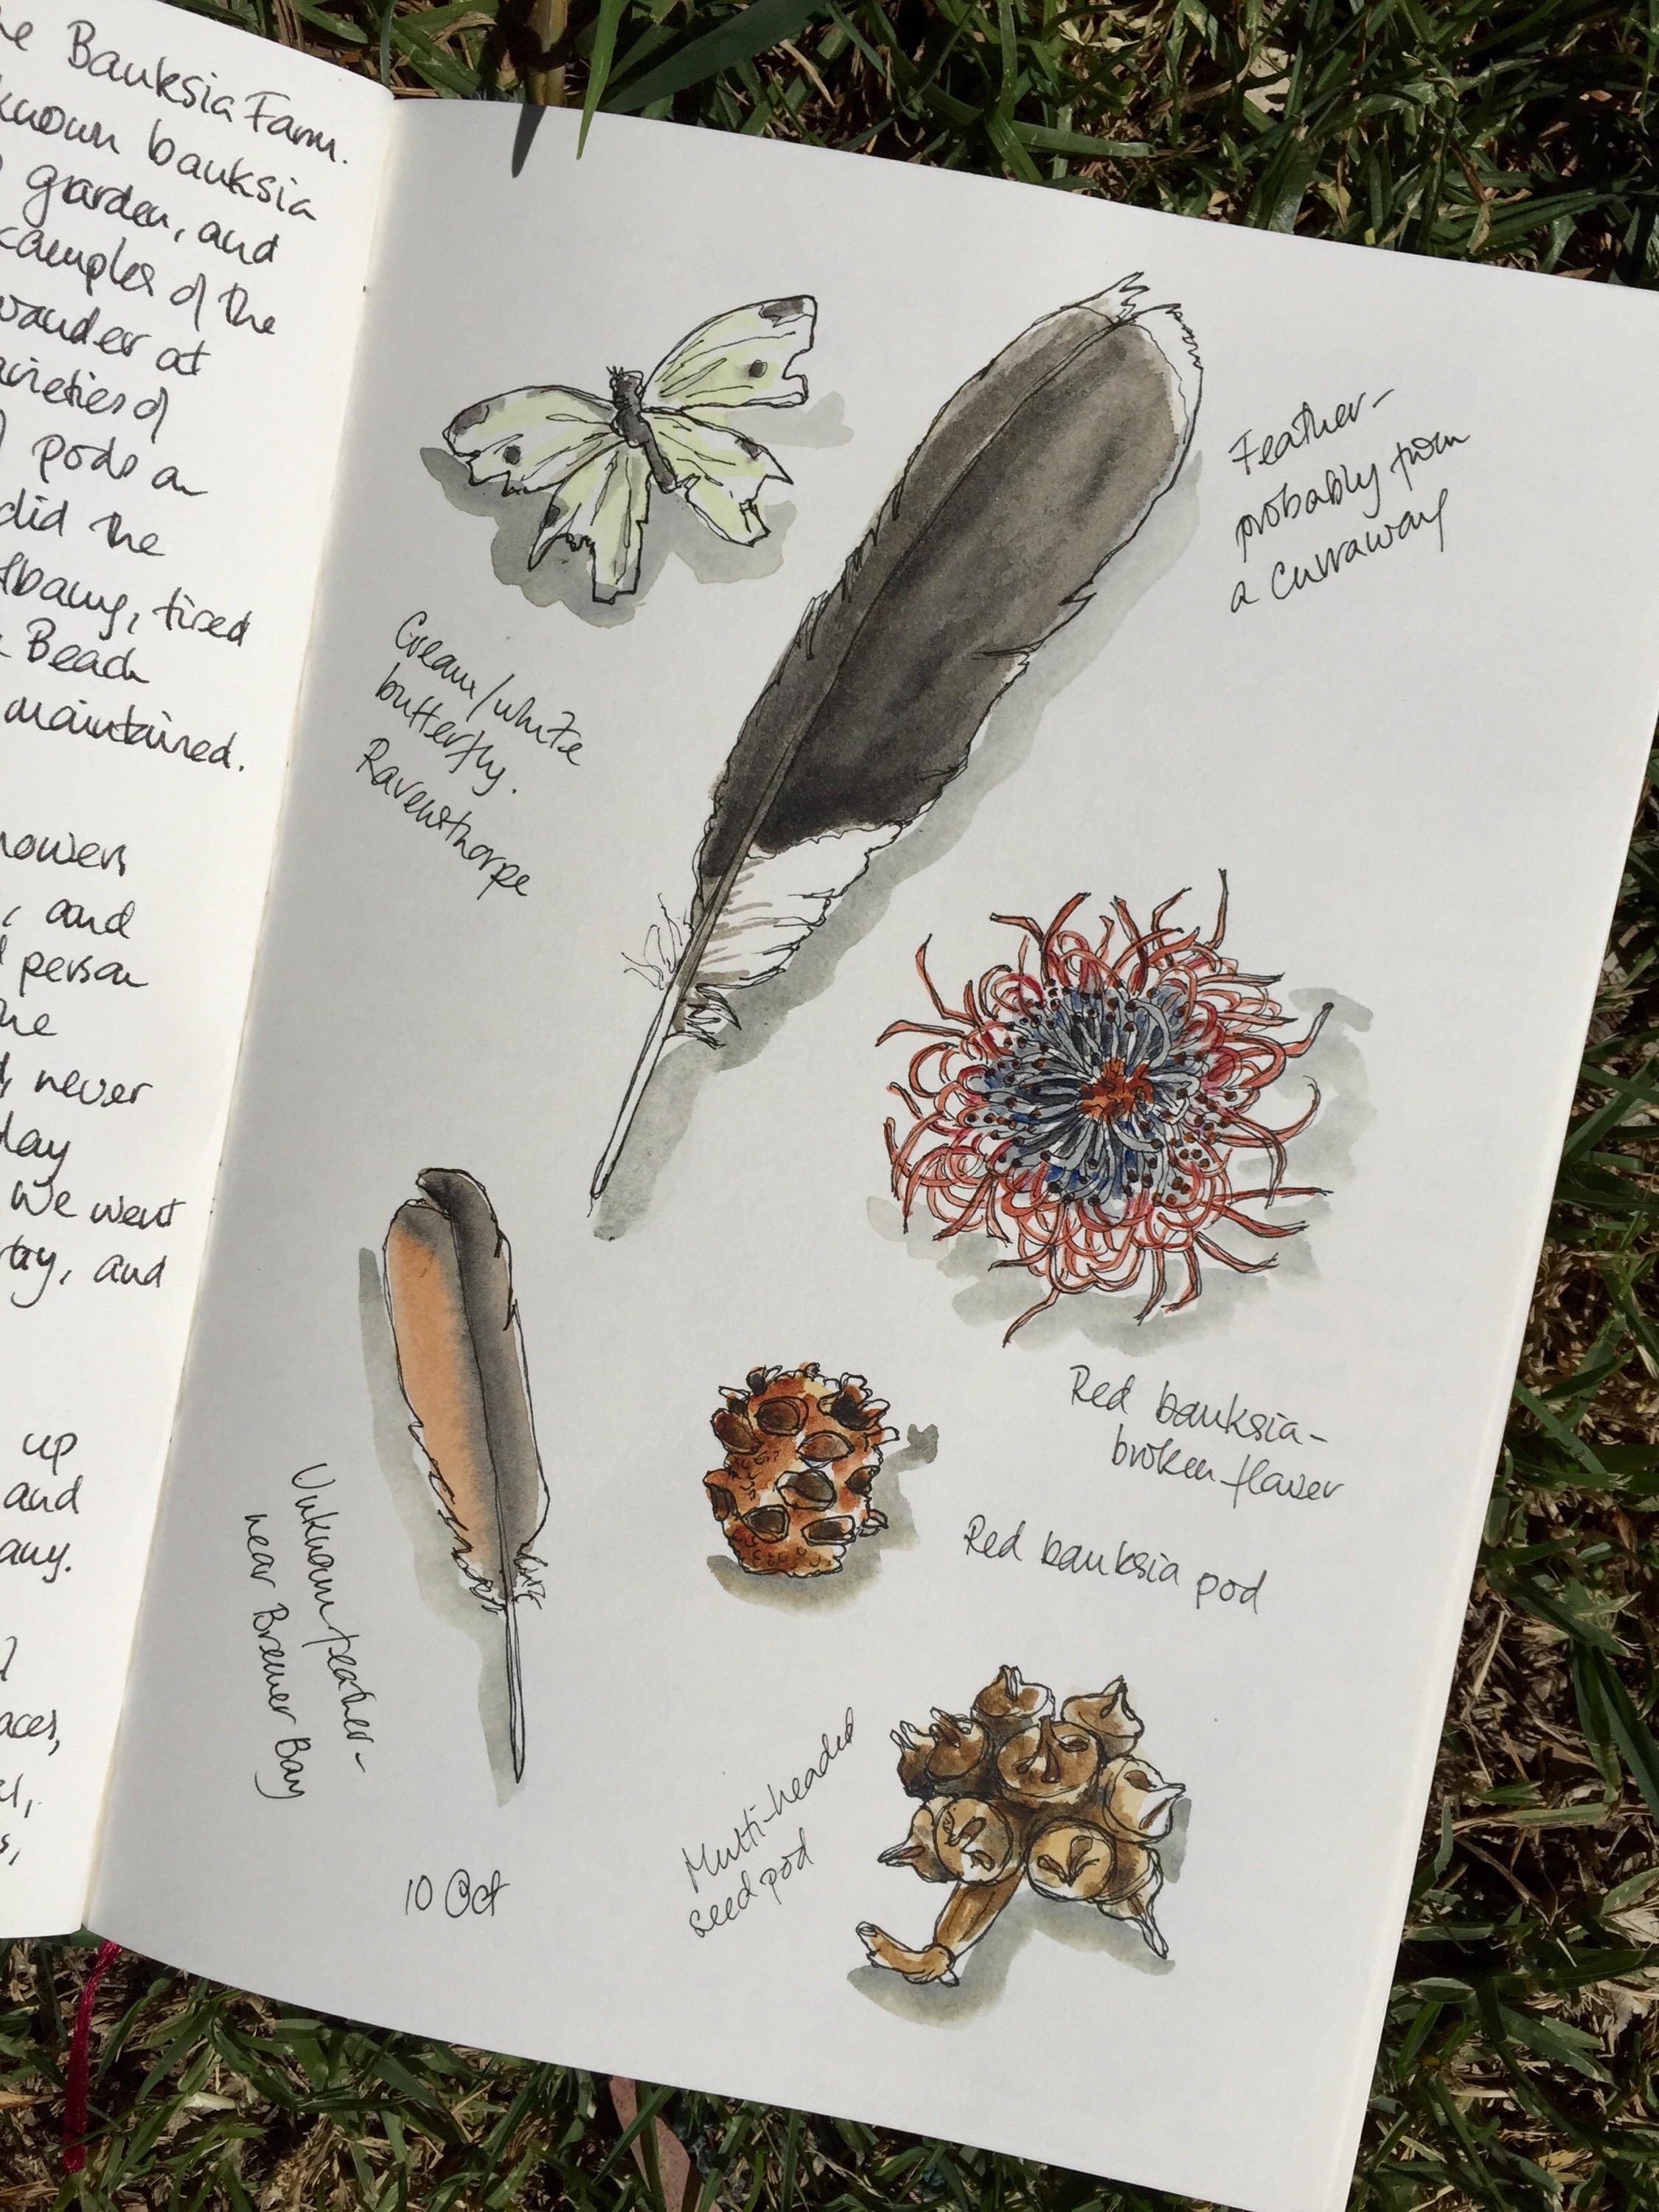 he Banksia Farm.
known banksia
garden, and
examples of the
wander at
varieties of
pods on
did the
Albany, tired
Beach
maintained.
howers
, and
person
he
never
day
We went
and
up
and
any.
aces,
Cream/white
butterfly.
Ravensthorpe
Feather-
probably from
a Currawong
Red banksia-
broken flower
Red banksia pod
Unknown feather-
near Bremer Bay
Multi-headed
seed pod
10 Oct